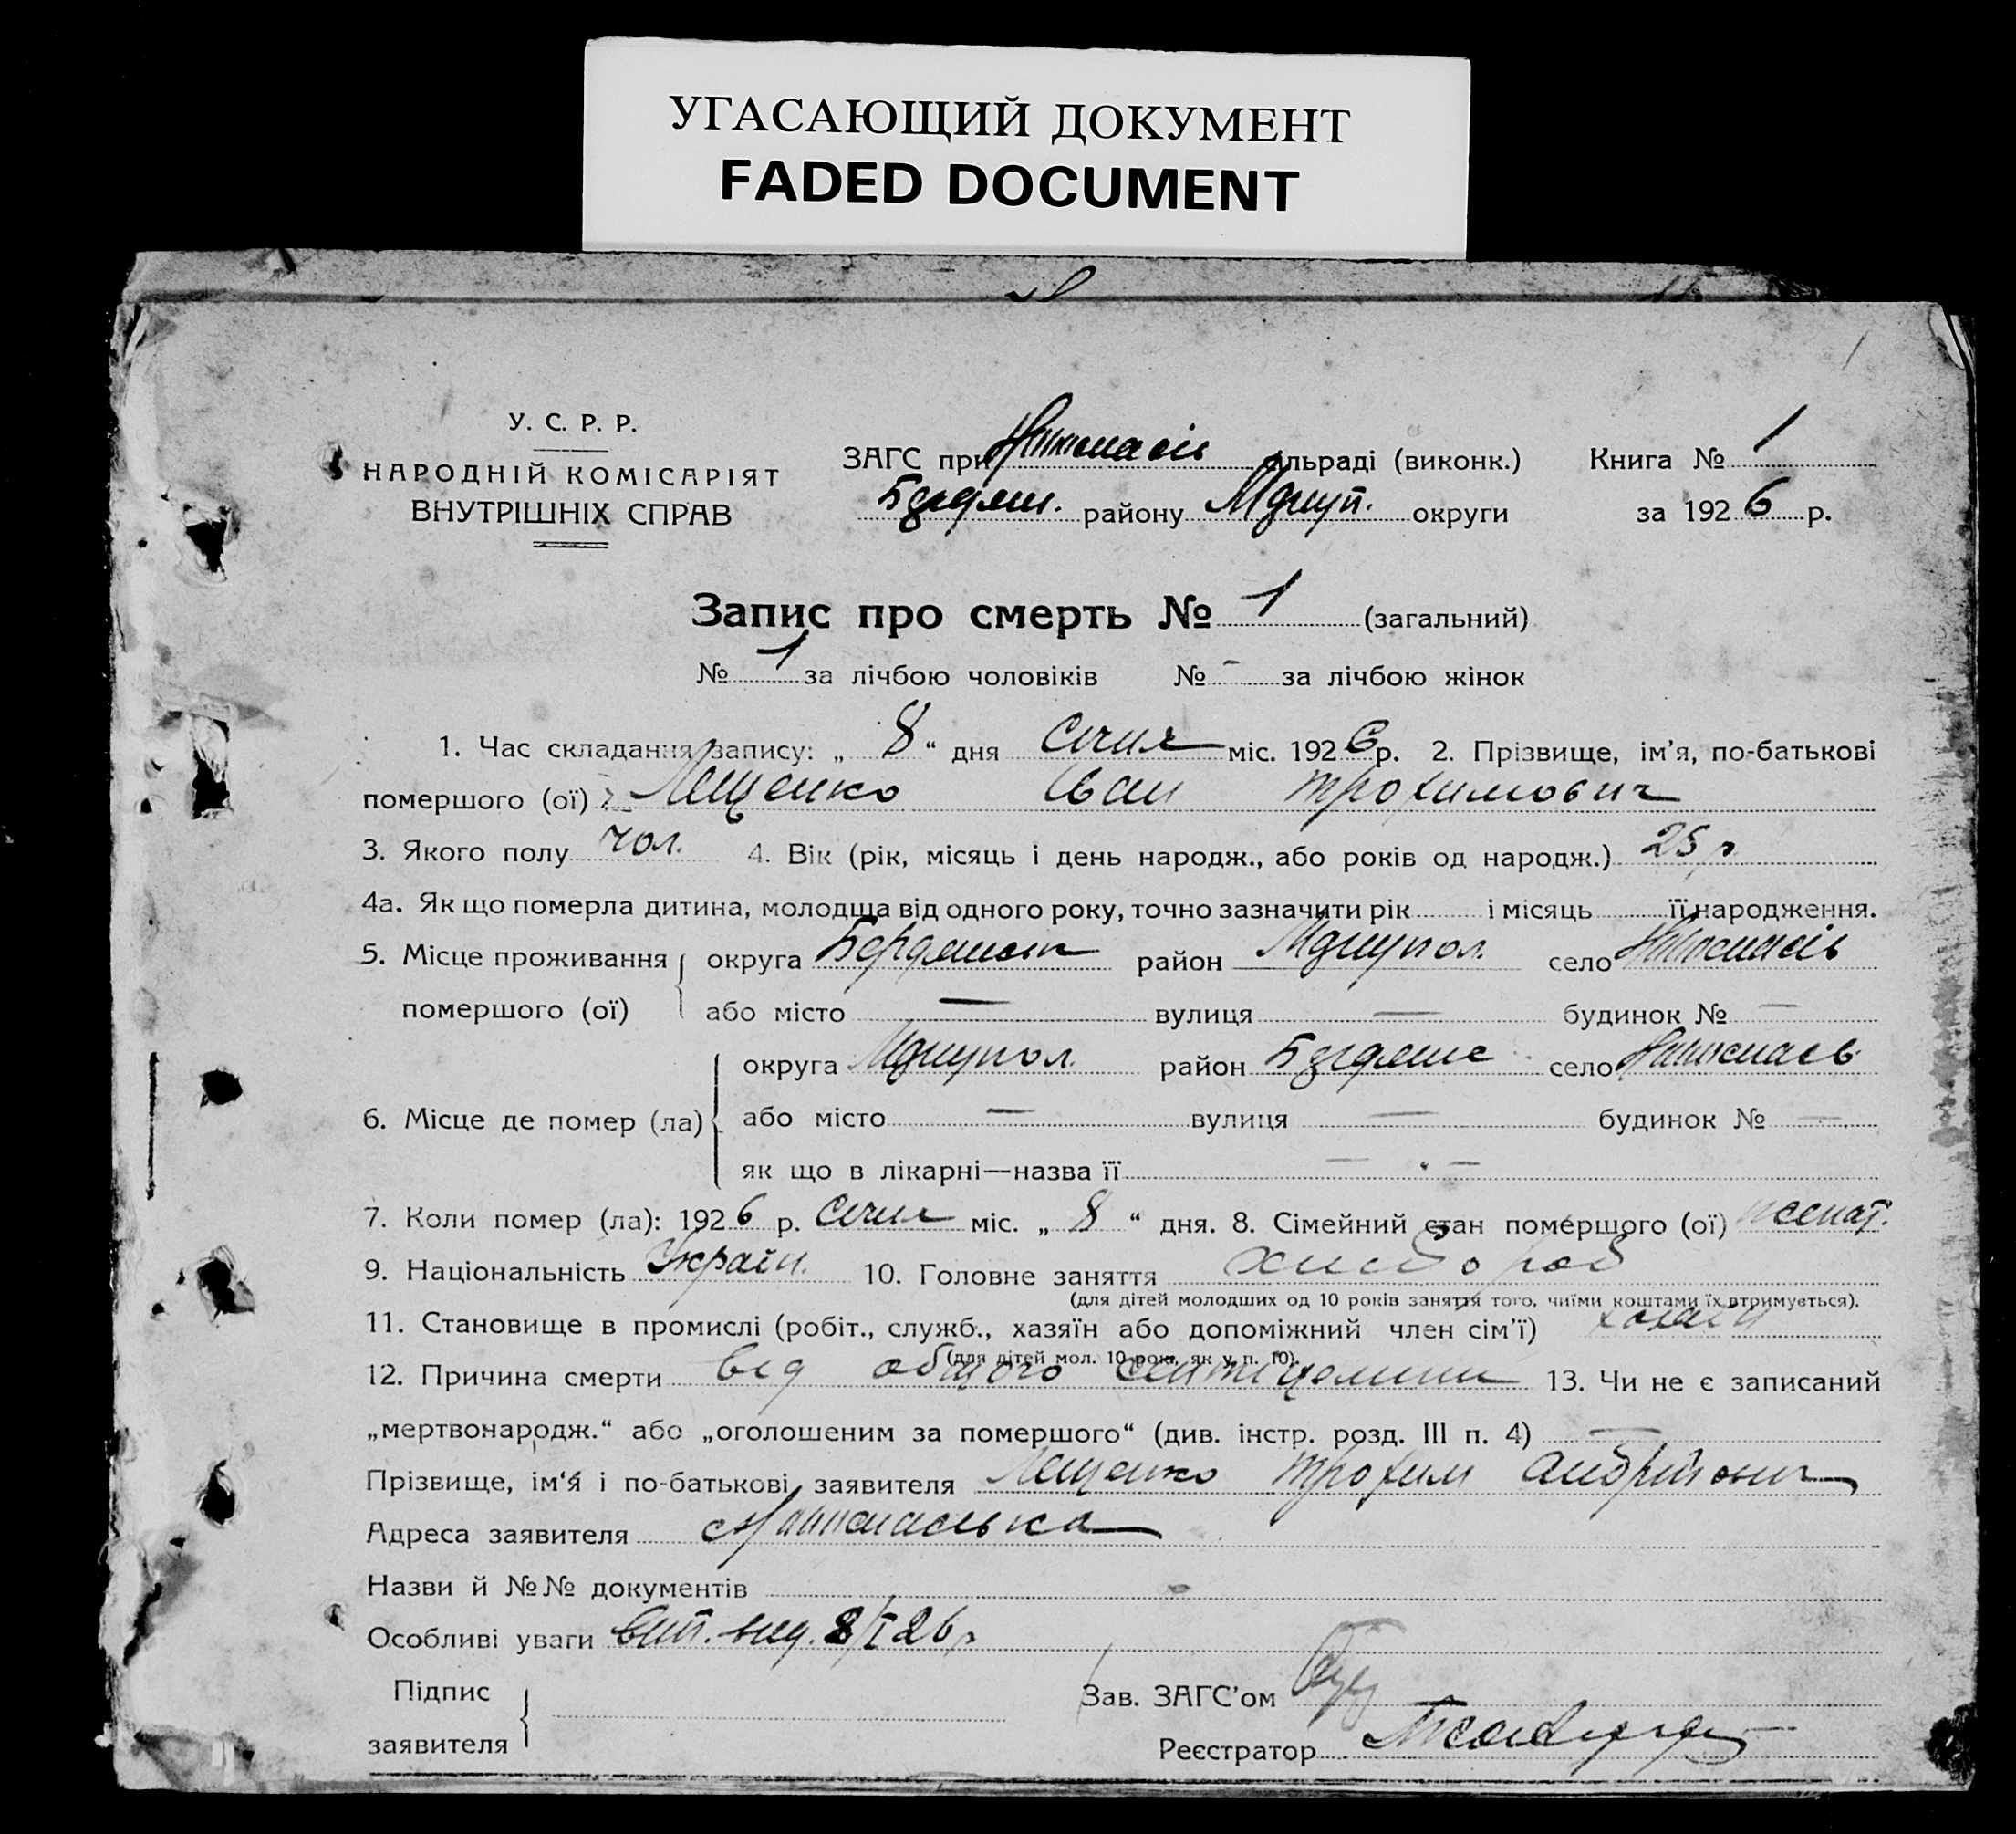 УГАСАЮЩИЙ ДОКУМЕНТ
FADED DOCUMENT
У. С. Р. Р.
НАРОДНІЙ КОМІСАРІЯТ
ВНУТРІШНІХ СПРАВ
ЗАГС при сільраді (виконк.)
району округи
Книга № 1
за 1926 р.
Запис про смерть № 1 (загальний)
№ 1 за лічбою чоловіків № – за лічбою жінок
1. Час складання запису: „ 8 “ дня Січня міс. 1926 р. 2. Прізвище, ім’я, по-батькові
помершого (ої) Лещенко Іван Трохимович
3. Якого полу чол. 4. Вік (рік, місяць і день народж., або років од народж.) 25 р.
4а. Як що померла дитина, молодща від одного року, точно зазначити рік і місяць її народження.
5. Місце проживання округа район село
помершого (ої) або місто — вулиця — будинок № —
округа район село
6. Місце де помер (ла) або місто — вулиця — будинок № —
як що в лікарні—назва її — —
7. Коли помер (ла): 1926 р. Січня міс. „ 8 “ дня. 8. Сімейний стан помершого (ої) женат.
9. Національність Україн. 10. Головне заняття хлібороб
(для дітей молодших од 10 років заняття того, чиїми коштами їх втримується).
11. Становище в промислі (робіт., служб., хазяїн або допоміжний член сім’ї) хазяїн
(для дітей мол. 10 рок., як у п. 10).
12. Причина смерти від общого 13. Чи не є записаний
„мертвонародж.“ або „оголошеним за помершого“ (див. інстр. розд. III п. 4) —
Прізвище, ім’я і по-батькові заявителя Лещенко Трохим Андрійович
Адреса заявителя
Назви й №№ документів
Особливі уваги вит. вид. 8/I 26 р.
Підпис
заявителя
Зав. ЗАГС’ом
Реєстратор